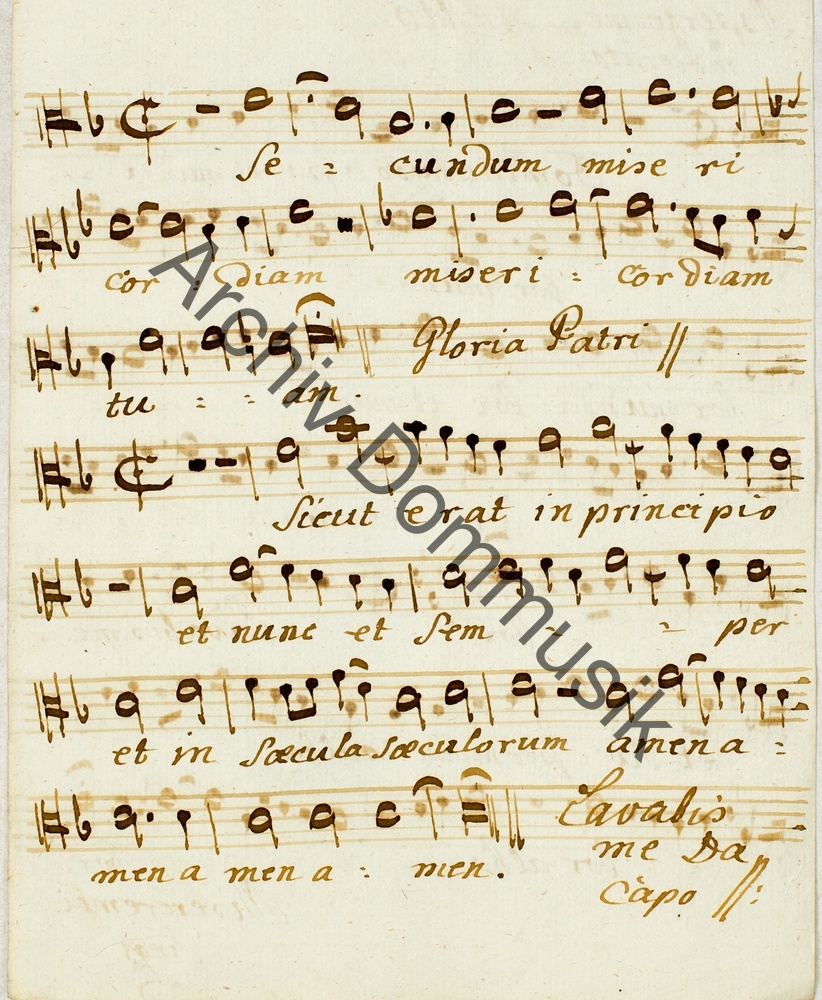 Se = cundum mise ri
cor = diam miseri = cor diam
tu = = am. Gloria Patri //
Sicut erat in principio
et nunc et Sem - = per
et in sæcula sæculorum amen a =
men a men a = men. Lavabis
me Da
Capo //:
Archiv Dommusik